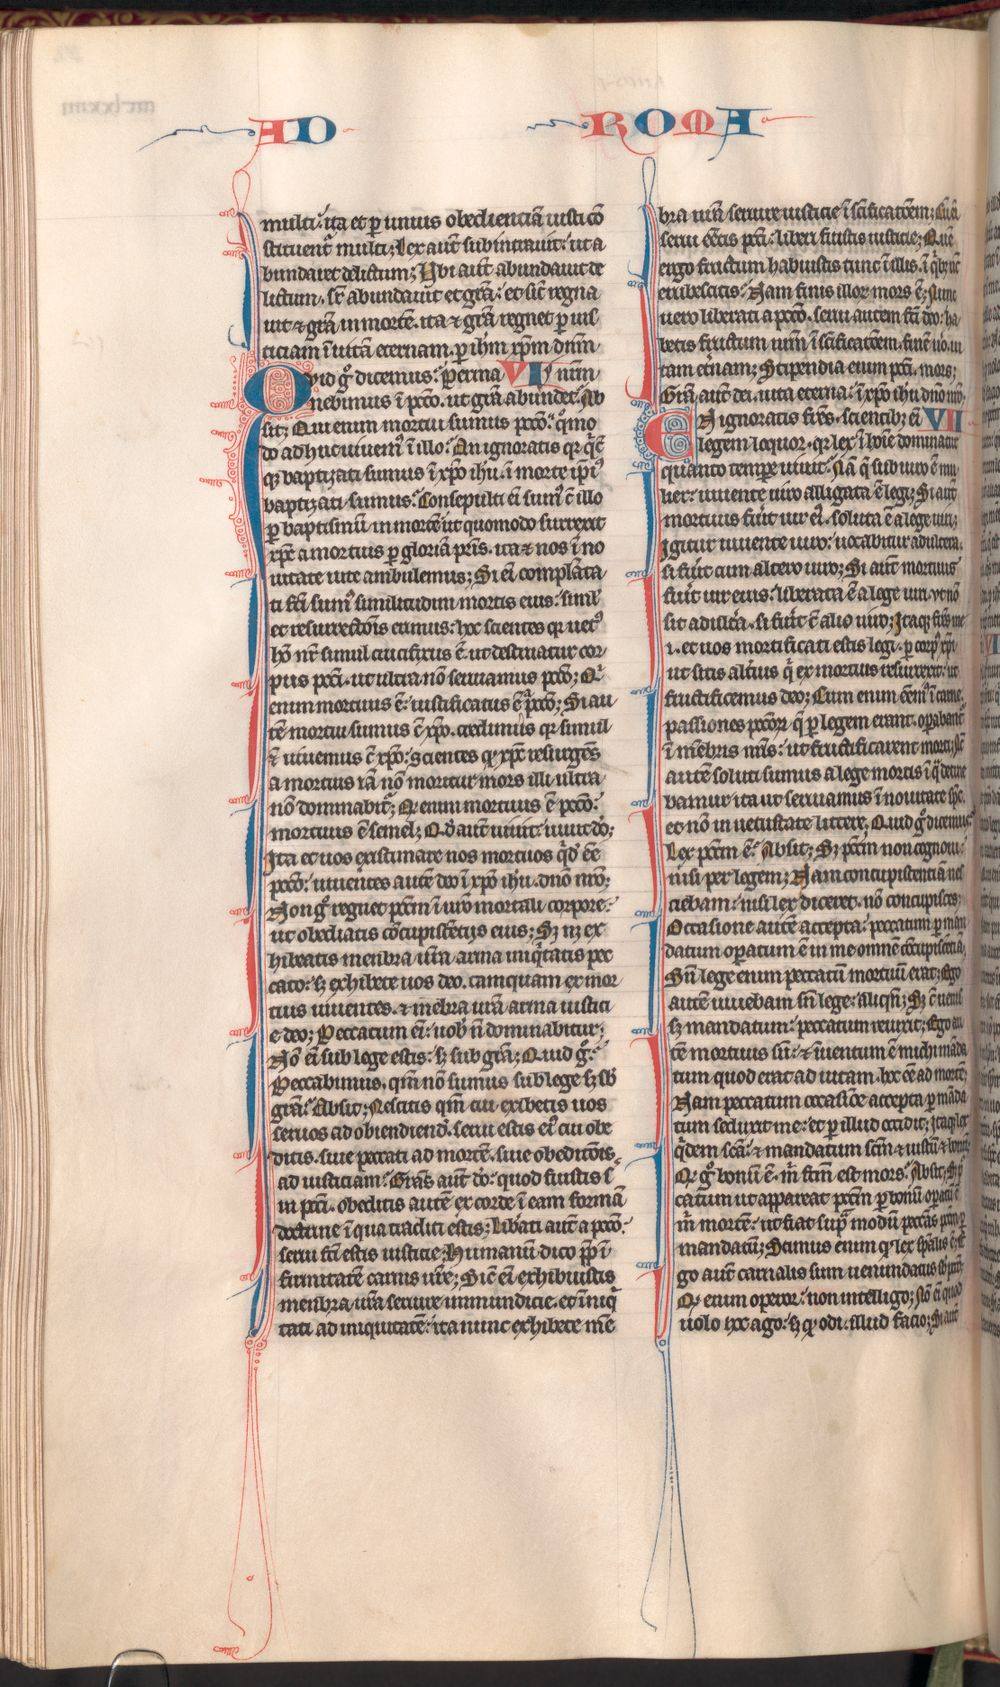 AD ROMA
multi: ita et p̲ unius obedienciā iusti cō
stituent᷑ multi; Lex aut̄ subintrauit: ut a
bundaret delictum; Vbi aut̄ abundauit de
lictum, sr̄ abundauit et gr̄a: et sic̄ regna
uit ⁊ gr̄a in morte. ita ⁊ gr̄a regnet p̲ ius
ticiam ī uitā eternam. p̲ ihm xp̄m dnm̄
Qvid gͦ dicemus: Perma VI nim̄
nebimus ī pcc̄o. ut gr̄a abundet: Ab
sit; Qui enim mortui sumus pcc̄o: qͦmo
do adhuc uiuemꝰ ī illo: An ignoratis qr q̄c̄
qꝫ baptizati sumus ī xp̄o ihu. ī morte ip̄iꝰ
baptizati sumus: Consepulti ei̅ sumꝰ c̄ illo
p̲ baptismū in mortē ut quomodo surrexit
xp̄c a mortuis p̲ gloriā pr̄is. ita ⁊ nos ī no
uitate uite ambulemus; Si ei̅ complāta
ti fc̄i sumꝰ similitudini mortis eius: simĺ
et resurrectōis erimus: hoc scientes qr uetꝰ
hō nr̄ simul crucifixus ē. ut destruatur cor
pus pcc̄i. ut ultra nō seruiamus pcc̄o; Qͥ
enim mortuus ē: iustificatus ē a pcc̄o; Si au
tē mortui sumus c̄ xp̄o. credimus qr simul
⁊ uiuemus c̄ xp̄o: scientes qꝫ xp̄c resurgēs
a mortuis iā nō moritur mors illi ultra
nō dominabit᷑; Qͥ enim mortuus ē pcc̄o:
mortuus ē semel; Qd̄ aut̄ uiuit: uiuit dō;
Ita et uos existimate uos mortuos qͥd̄ ēē
pcc̄o: uiuentes autē deo ī xp̄o ihu. dnō nr̄o;
Non gͦ regnet pcc̄m ī ur̄o mortali corpore:
ut obediatis cōcupiscētijs eius; Sꝫ nꝫ ex
hibeatis menbra ur̄a arma iniqͥtatis pec
cato: sꝫ exhibete uos deo. tamquam ex mor
tuis uiuentes. ⁊ mēbra ur̄a arma iustici
e deo; Peccatum ei̅: uob̄ n̄ dominabitur;
Nō ei̅ sub lege estis: sꝫ sub gr̄a; Quid gͦ:
Peccabimus. qm̄ nō sumus sub lege sꝫ sb̄
gr̄a: Absit; Nescitis qm̄ cui exibetis uos
seruos ad obiendiend̄. serui estis ei̅ꝰ cui obe
ditis. siue peccati ad mortē. siue obeditōis
ad iusticiam: Grās aut̄ dō: quod fuistis s̄
ui pcc̄i. obedistis autē ex corde ī eam formā
doctrine ī qua traditi estis; Libati aut̄ a pcc̄o:
serui fc̄i estis iusticie; Humanū dico pp̄ ī
firmitatē carnis ur̄e; Sic̄ ei̅ exhibuistis
menbra ur̄a seruire inmundicie. et īniqͥ
tati ad iniquitatē: ita nunc exhibete mē
bra ur̄a seruire iusticie ī sc̄ificatōem; Cum̄
serui eētis pcc̄i: liberi fuistis iusticie; Quē
ergo fructum habuistis tunc ī illis. ī qͥbꝫ nc̄
erubescitis: Nam finis illoꝝ mors ē; Nunc
uero liberati a pcc̄o. serui autem fc̄i deo: ha
betis fructum ur̄m ī sc̄ificatōem. finē uͦo. ui
tam et̄nam; Stipendia enim pcc̄i. mors;
Gr̄a aut̄ dei. uita eterna: ī xp̄o ihu dnō nr̄o;
AN ignoratis fr̄es. scientibꝫ ei̅ VII
legem loquor. qr lex ī hoīe dominatur
quanto tempe̲ uiuit: Nā q̄ sub uiro ē mu
lier: uiuente uiro alligata ē legi; Si aut̄
mortuus fuit̄ uir eiꝰ. soluta ē a lege uiri;
Igitur uiuente uiro: uocabitur adultera.
si fuit̄ cum altero uiro; Si aut̄ mortuus
fuit̄ uir eius: liberata ē a lege uiri. ut nō
sit adult̄a. si fuit̄ c̄ alio uiro; Itaqꝫ fr̄es me
i. et uos mortificati estis legi. p̲ corpꝰ xp̄i
ut sitis alt̄ius qͥ ex mortuis resurrexit: ut
fructificemus deo; Cum enim eēmꝰ ī carne
passiones pccōꝝ q̄ p̲ legem erant. op̲abant᷑
ī mēbris nr̄is: ut fructificarent morti; Nc̄
autē soluti sumus a lege mortis ī q̄ detine
bamur ita ut seruiamus ī nouitate sp̄c.
et nō in uetustate littere. Quid gͦ dicemus:
Lex pcc̄m ē: Absit; Sꝫ pcc̄m non cognoui:
nisi per legem; Nam concupiscentiā nes
ciebam: nisi lex diceret. nō concupisces;
Occasione autē accepta: peccatum p̲ man
datum op̲atum ē in me omnē cōcupiscēciā;
Sn̄ lege enim peccatū mortuū erat; Ego
autē uiuebam sn̄ lege: aliqn̄; Sꝫ c̄ uenis
sꝫ mandatum: peccatum reuixit; Ego au
tē mortuus sū: ⁊ īuentum ē michi māda
tum quod erat ad uitam. hoc ēē ad mortē;
Nam peccatum occasiōe accepta p̲ māda
tum seduxit me: et p̲ illud occidit; Itaqꝫ lex
qͥdem sc̄a: ⁊ mandatum sc̄m ⁊ iustū ⁊ bonū;
Qͥ gͦ bonū ē. m̄ fc̄m est mors: Absit; Sꝫ p̲
catum ut appareat pcc̄m p̲ bonū op̲atū ē
m̄ mortē: ut fiat supͣ modū peccās pcc̄m p̲
mandatū; Scimus enim qꝫ lex sp̄alis ē: e
go aut̄ carnalis sum uenundatus sb̄ pcc̄o;
Qͥ enim operor: non intelligo; Nō ei̅ quod
uolo hoc ago: sꝫ qꝫ odi. illud facio; Si aut̄